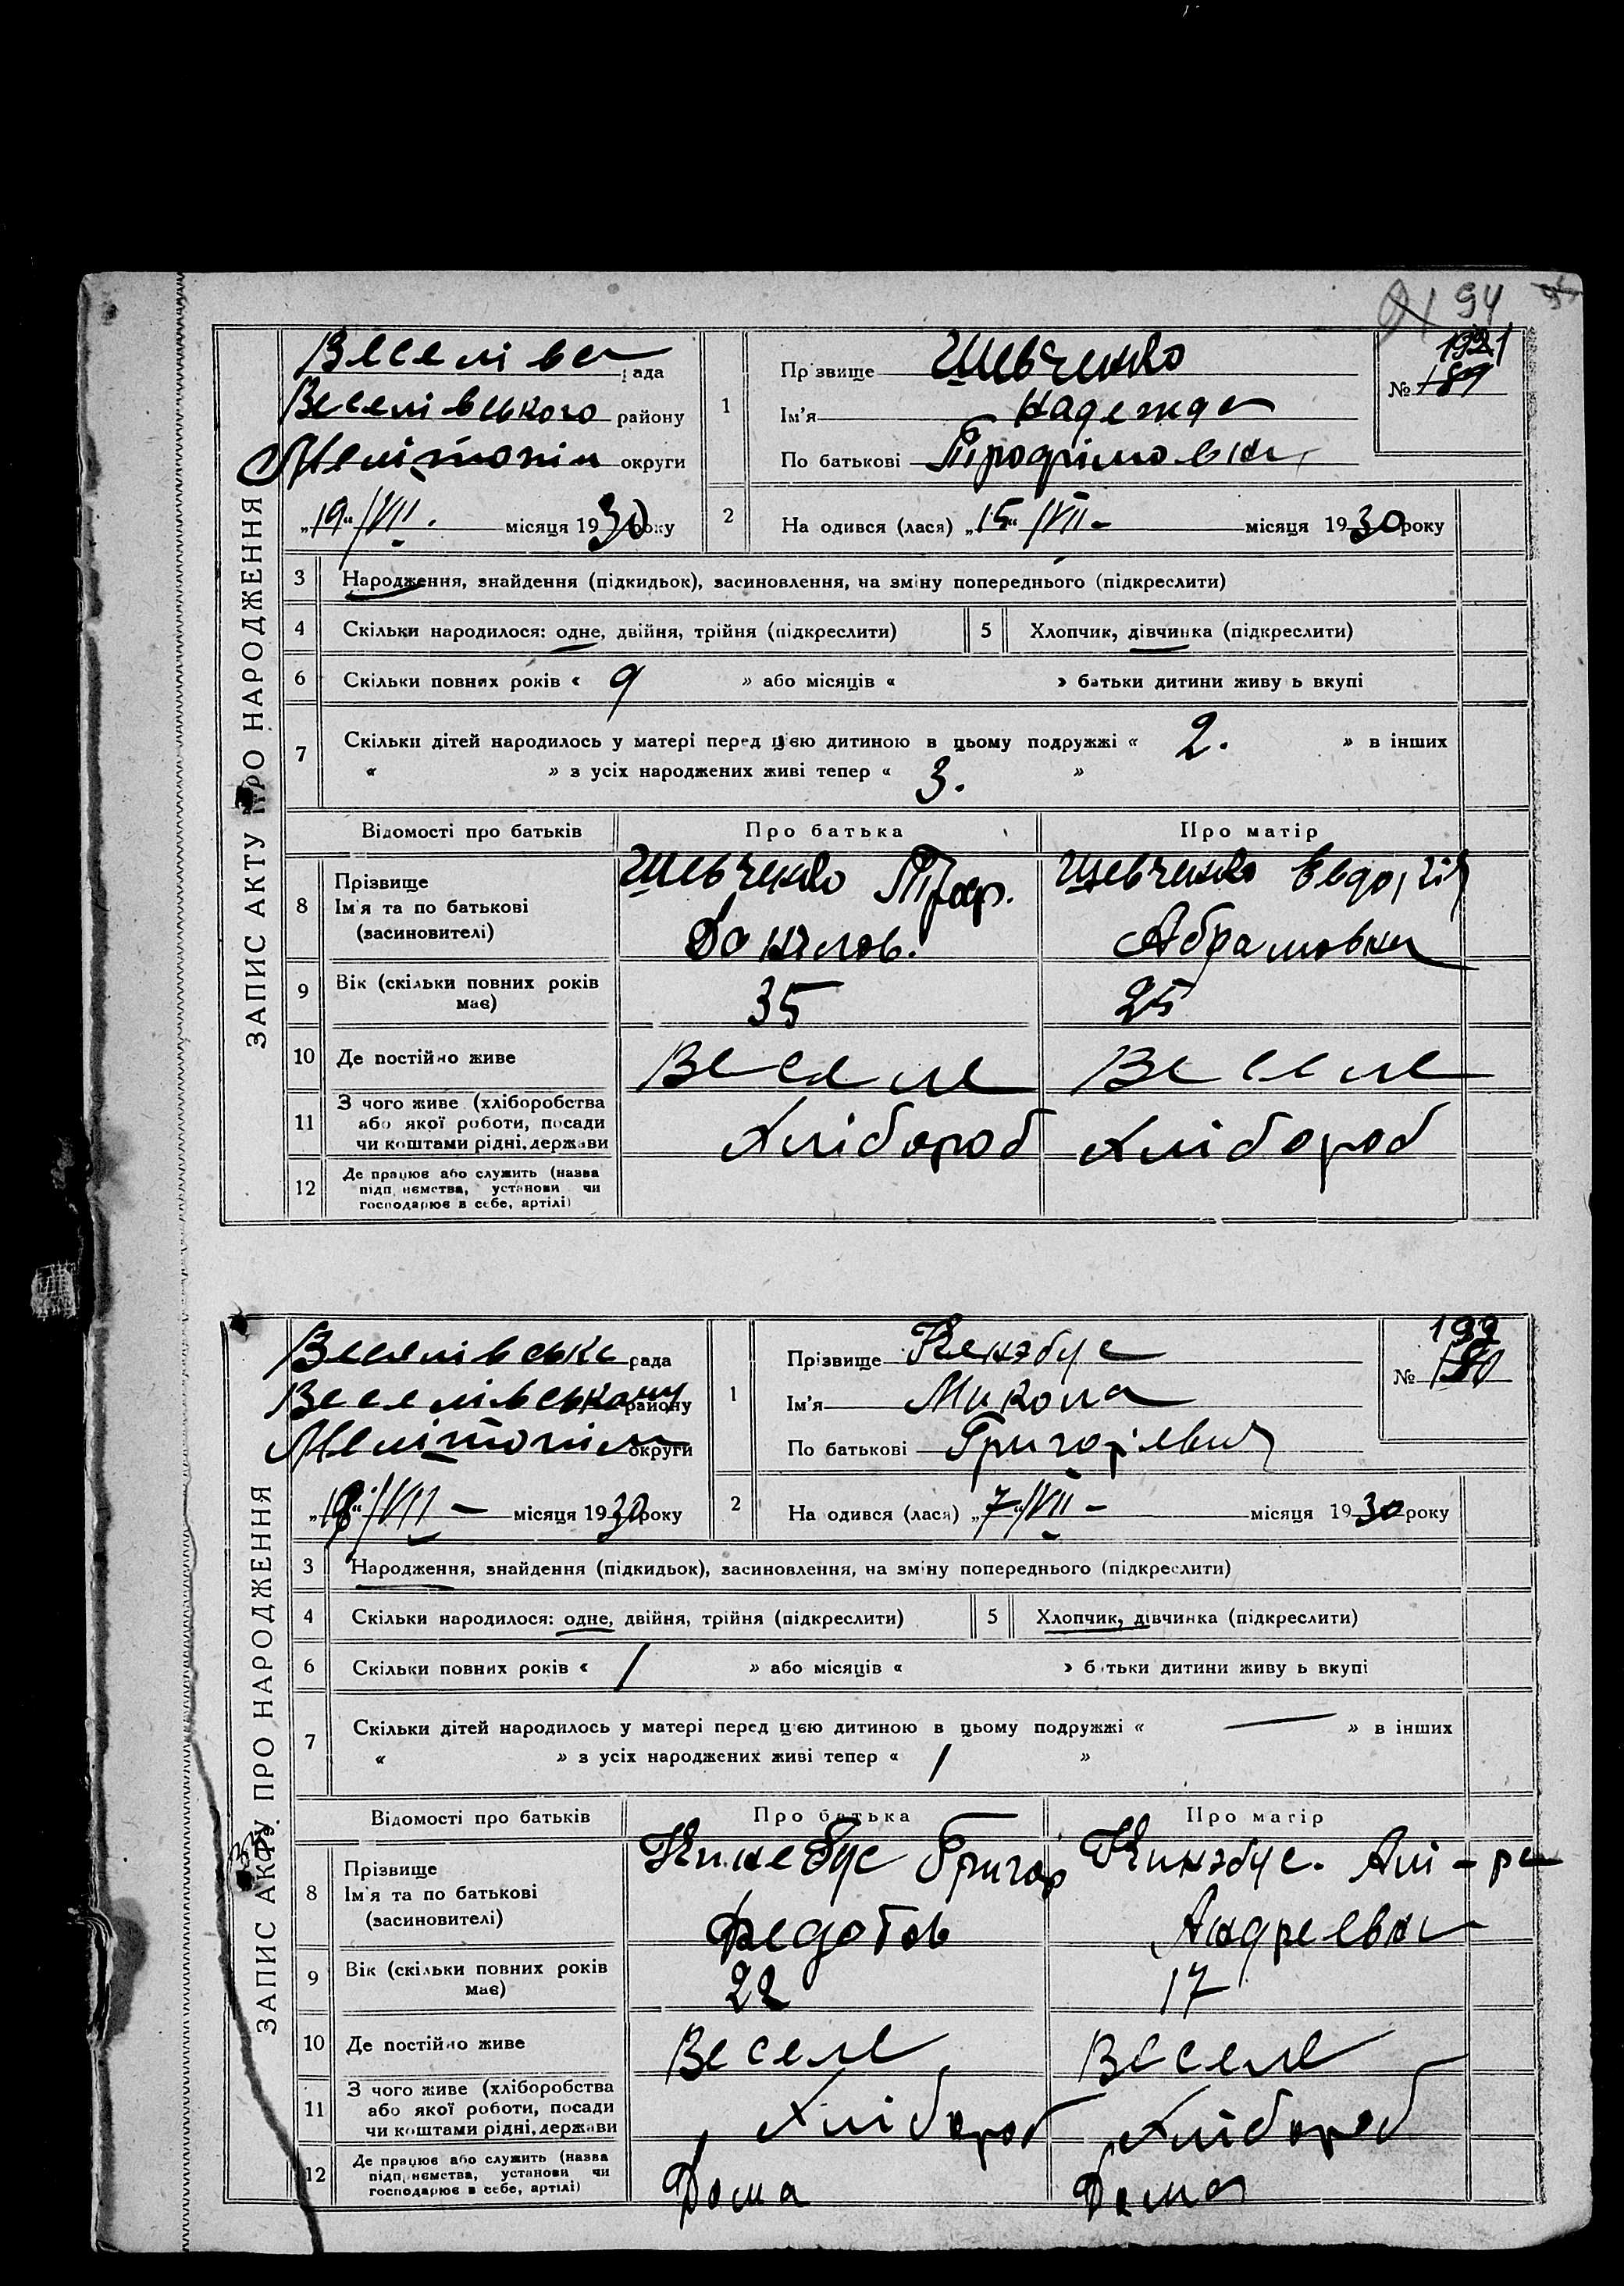 94
ЗАПИС АКТУ ПРО НАРОДЖЕННЯ
Веселівс рада
Веселівського району
Мелітопіл округи
„19“/VII. місяця 1930 року
1
Прізвище Шевченко
Ім'я Надежда
По батькові Трофімовна
№ 189
191
2
На одився (лася) „15“/VII – місяця 1930 року
3 Народження, знайдення (підкидьок), засиновлення, на зміну попереднього (підкреслити)
4 Скільки народилося: одне, двійня, трійня (підкреслити) 5 Хлопчик, дівчинка (підкреслити)
6 Скільки повних років « 9 » або місяців « » батьки дитини живу ь вкупі
7 Скільки дітей народилось у матері перед цією дитиною в цьому подружжі « 2. » в інших
« » з усіх народжених живі тепер « 3. »
Відомості про батьків Про батька Про матір
8 Прізвище
Ім'я та по батькові
(засиновителі)
Шевченко Троф.
Данилов.
Шевченко Евдокія
Абрамовна
9 Вік (скільки повних років
має) 35 25
10 Де постійно живе Веселе Веселе
11 З чого живе (хліборобства
або якої роботи, посади
чи коштами рідні, держави
Хлібороб Хлібороб
12 Де працює або служить (назва
підп иємства, установи чи
господарює в себе, артілі)
ЗАПИС АКТУ ПРО НАРОДЖЕННЯ
Веселівське рада
Веселівському району
Мелітопіл округи
„18“/VII – місяця 1930 року
1
Прізвище Кенэбус
Микола
Ім'я
По батькові Григорієвич
192
№
2
На одився (лася) „7“/VII – місяця 1930 року
3 Народження, знайдення (підкидьок), засиновлення, на зміну попереднього (підкреслити)
4 Скільки народилося: одне, двійня, трійня (підкреслити) 5 Хлопчик, дівчинка (підкреслити)
6 Скільки повних років « 1 » або місяців « » батьки дитини живу ь вкупі
7 Скільки дітей народилось у матері перед цією дитиною в цьому подружжі « — » в інших
« » з усіх народжених живі тепер « 1 »
Відомості про батьків Про батька Про матір
8 Прізвище
Ім'я та по батькові
(засиновителі)
Кинебус Григор
Федотов
Кинэбус.
Андреевна
9 Вік (скільки повних років
має) 22 17
10 Де постійно живе Веселе Веселе
11 З чого живе (хліборобства
або якої роботи, посади
чи коштами рідні, держави
Хлібороб Хлібороб
12 Де працює або служить (назва
підп иємства, установи чи
господарює в себе, артілі)
Дома Дома